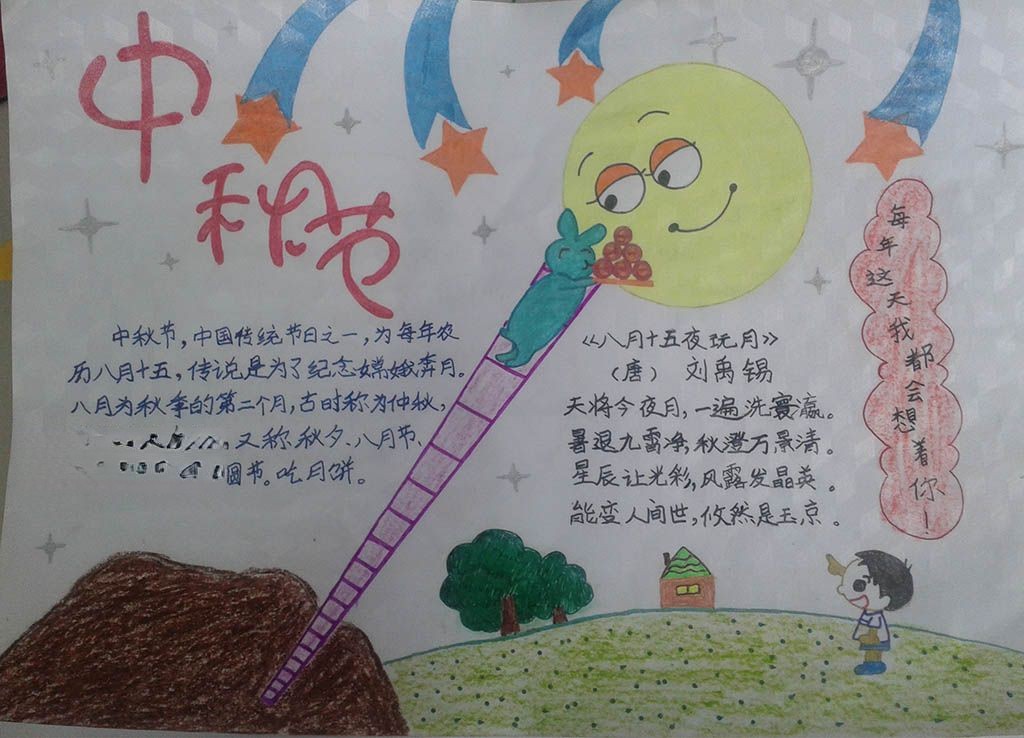 中秋节
中秋节，中国传统节日之一，为每年农
历八月十五，传说是为了纪念嫦娥奔月。
八月为秋季的第二个月，古时称为仲秋，
又称秋夕、八月节、
圆节。吃月饼。
《八月十五夜玩月》
（唐） 刘禹锡
天将今夜月，一遍洗寰瀛。
暑退九霄净，秋澄万景清。
星辰让光彩，风露发晶英。
能变人间世，攸然是玉京。
每年这天我都会想着你！